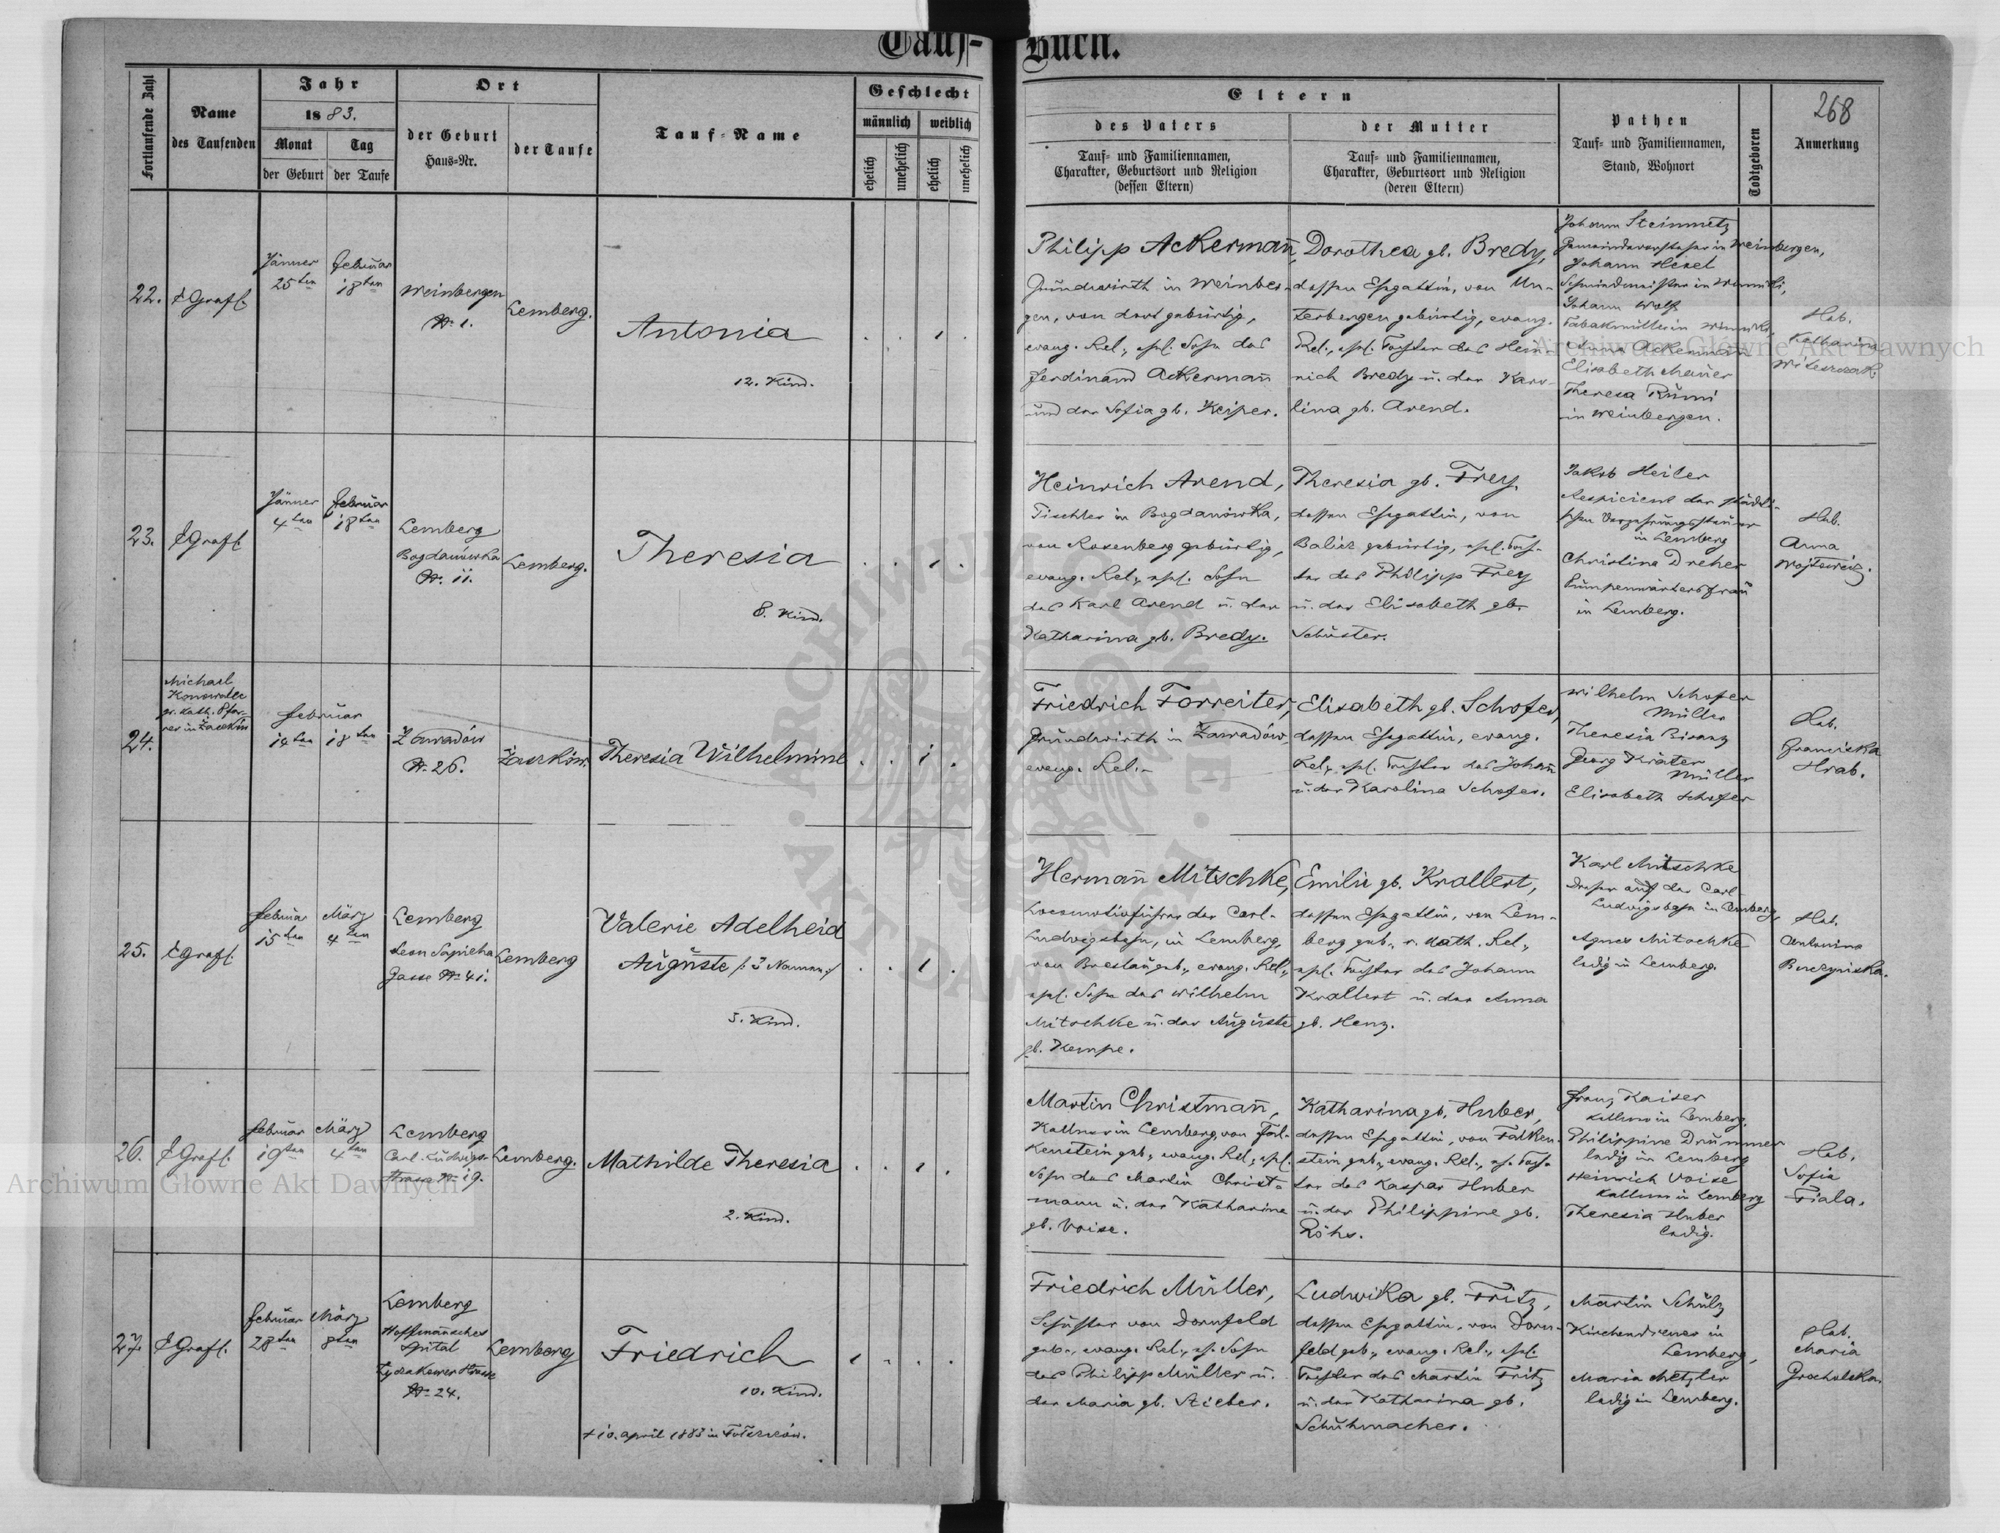 Tauf-Buch.
268
Fortlaufende Zahl
Name
des Taufenden
Jahr
1883.
Monat
Tag
der Geburt
der Taufe
Ort
der Geburt
Haus-Nr.
der Taufe
Tauf-Name
Geschlecht
männlich
weiblich
ehelich
unehelich
ehelich
unehelich
Eltern
des Vaters
Tauf- und Familiennamen,
Charakter, Geburtsort und Religion
(dessen Eltern)
der Mutter
Tauf- und Familiennamen,
Charakter, Geburtsort und Religion
(deren Eltern)
Pathen
Tauf- und Familiennamen,
Stand, Wohnort
Todtgeboren
Anmerkung
22.
Jänner
25ten
Februar
18ten
Weinbergen
Nr. 1.
Lemberg.
Antonia
12. Kind.
Philipp Ackermann,
Grundwirth in Weinber-
gen, von dort gebürtig,
evang. Rel., ehl. Sohn des
Ferdinand Ackermann
und der Sofia gb. Keiper.
Dorothea gb. Bredy,
dessen Ehegattin, von Un-
terbergen gebürtig, evang.
Rel., ehl. Tochter des Hein-
rich Bredy u. der Karo-
lina gb. Arend.
Johann Steinmetz
Gemeindevorsteher in Weinbergen,
Johann Hexel
Schmiedmeister in Winniki,
Johann Wolf
Anna Ackermann
Elisabeth Mauer
Theresa Rumi
in Weinbergen.
Heb.
Katharina
23.
Jänner
4ten
Februar
18ten
Lemberg
Bogdanówka
Nr. 11.
Lemberg.
Theresia
8. Kind.
Heinrich Arend,
Tischler in Bogdanówka,
von Rosenberg gebürtig,
evang. Rel., ehl. Sohn
des Karl Arend u. der
Katharina gb. Bredy.
Theresia gb. Frey,
dessen Ehegattin, von
Balicz gebürtig, ehl. Toch-
ter des Philipp Frey
u. der Elisabeth gb.
Schuster.
Jakob Heiler
Respicient der städti-
schen Verzehrungssteuer
in Lemberg
Christina Dreher
Pumpenwärtersfrau
in Lemberg.
Heb.
Anna
24.
Michael
gr. kath. Pfar-
rer in Zaszków
Februar
14ten
18ten
Zawadów
Nr. 26.
Zaszków.
Theresia Wilhelmine
Friedrich Forreiter,
Grundwirth in Zawadów,
evang. Rel.
Elisabeth gb. Schofer,
dessen Ehegattin, evang.
Rel., ehl. Tochter des Johann
u. der Karolina Schofer.
Wilhelm Schofer
Müller
Theresia Bisanz
Georg Kräter
Müller
Elisabeth Schofer
Heb.
Franciska
Hrab.
25.
Februar
15ten
März
4ten
Lemberg
Leon Sapieha
Gasse Nr. 41.
Lemberg
Valerie Adelheid
Auguste /: 3 Namen :/
5. Kind.
Hermann Mitschke,
Locomotivführer der Carl-
Ludwigsbahn, in Lemberg,
von Breslau geb., evang. Rel.,
ehl. Sohn des Wilhelm
Mitschke u. der Auguste
gb. Kempe.
Emilie gb. Krallert,
dessen Ehegattin, von Lem-
berg geb., r. kath. Rel.,
ehl. Tochter des Johann
Krallert u. der Anna
gb. Henz.
Karl Mitschke
Dreher auf der Carl-
Ludwigsbahn in Lemberg,
Agnes Mitschke
ledig in Lemberg.
Heb.
Antonina
26.
Februar
19ten
März
4ten
Lemberg
Carl-Ludwigs-
Strasse Nr. 19.
Lemberg.
Mathilde Theresia
2. Kind.
Martin Christmann,
Kellner in Lemberg, von Fal-
kenstein geb., evang. Rel., ehl.
Sohn des Martin Christ-
mann u. der Katharina
gb. Voise.
Katharina gb. Huber,
dessen Ehegattin, von Falken-
stein geb., evang. Rel., eh. Toch-
ter des Kaspar Huber
u. der Philippine gb.
Röhr.
Franz Kaiser
Kellner in Lemberg,
Philippine Drummer
ledig in Lemberg
Heinrich Voise
Kellner in Lemberg
Theresia Huber
ledig.
Heb.
Sofia
Fiala.
27.
Februar
28ten
März
8ten
Lemberg
Hoffmannsches
Spital
Lyczakower Strasse
Nr. 24.
Lemberg
Friedrich
10. Kind.
+ 10. April 1883 in
Friedrich Müller,
Schuster von Dornfeld
geb., evang. Rel., eh. Sohn
des Philipp Müller u.
der Maria gb. Stieber.
Ludwika gb. Fritz,
dessen Ehegattin, von Dorn-
feld geb., evang. Rel., ehl.
Tochter des Martin Fritz
u. der Katharina gb.
Schuhmacher.
Martin Schulz
Kirchendiener in
Lemberg,
Maria Metzler
ledig in Lemberg.
Heb.
Maria
Grocholska.
Archiwum Główne Akt Dawnych
Archiwum Główne Akt Dawnych
ARCHIWUM GŁÓWNE AKT DAWNYCH